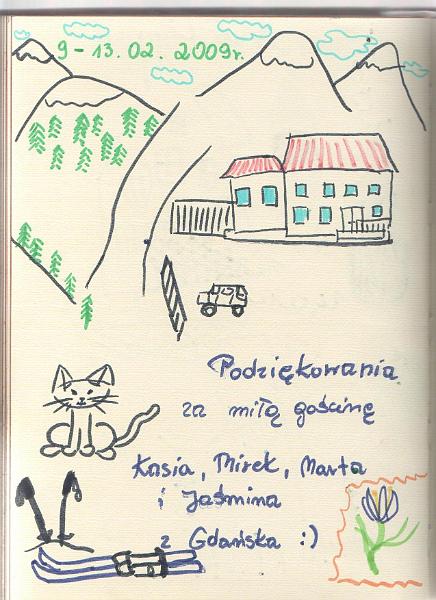 9-13.02.2009r.
Podziękowania
za miłą gościnę
Kasia, Mirek, Marta
i Jaśmina
z Gdańska :)